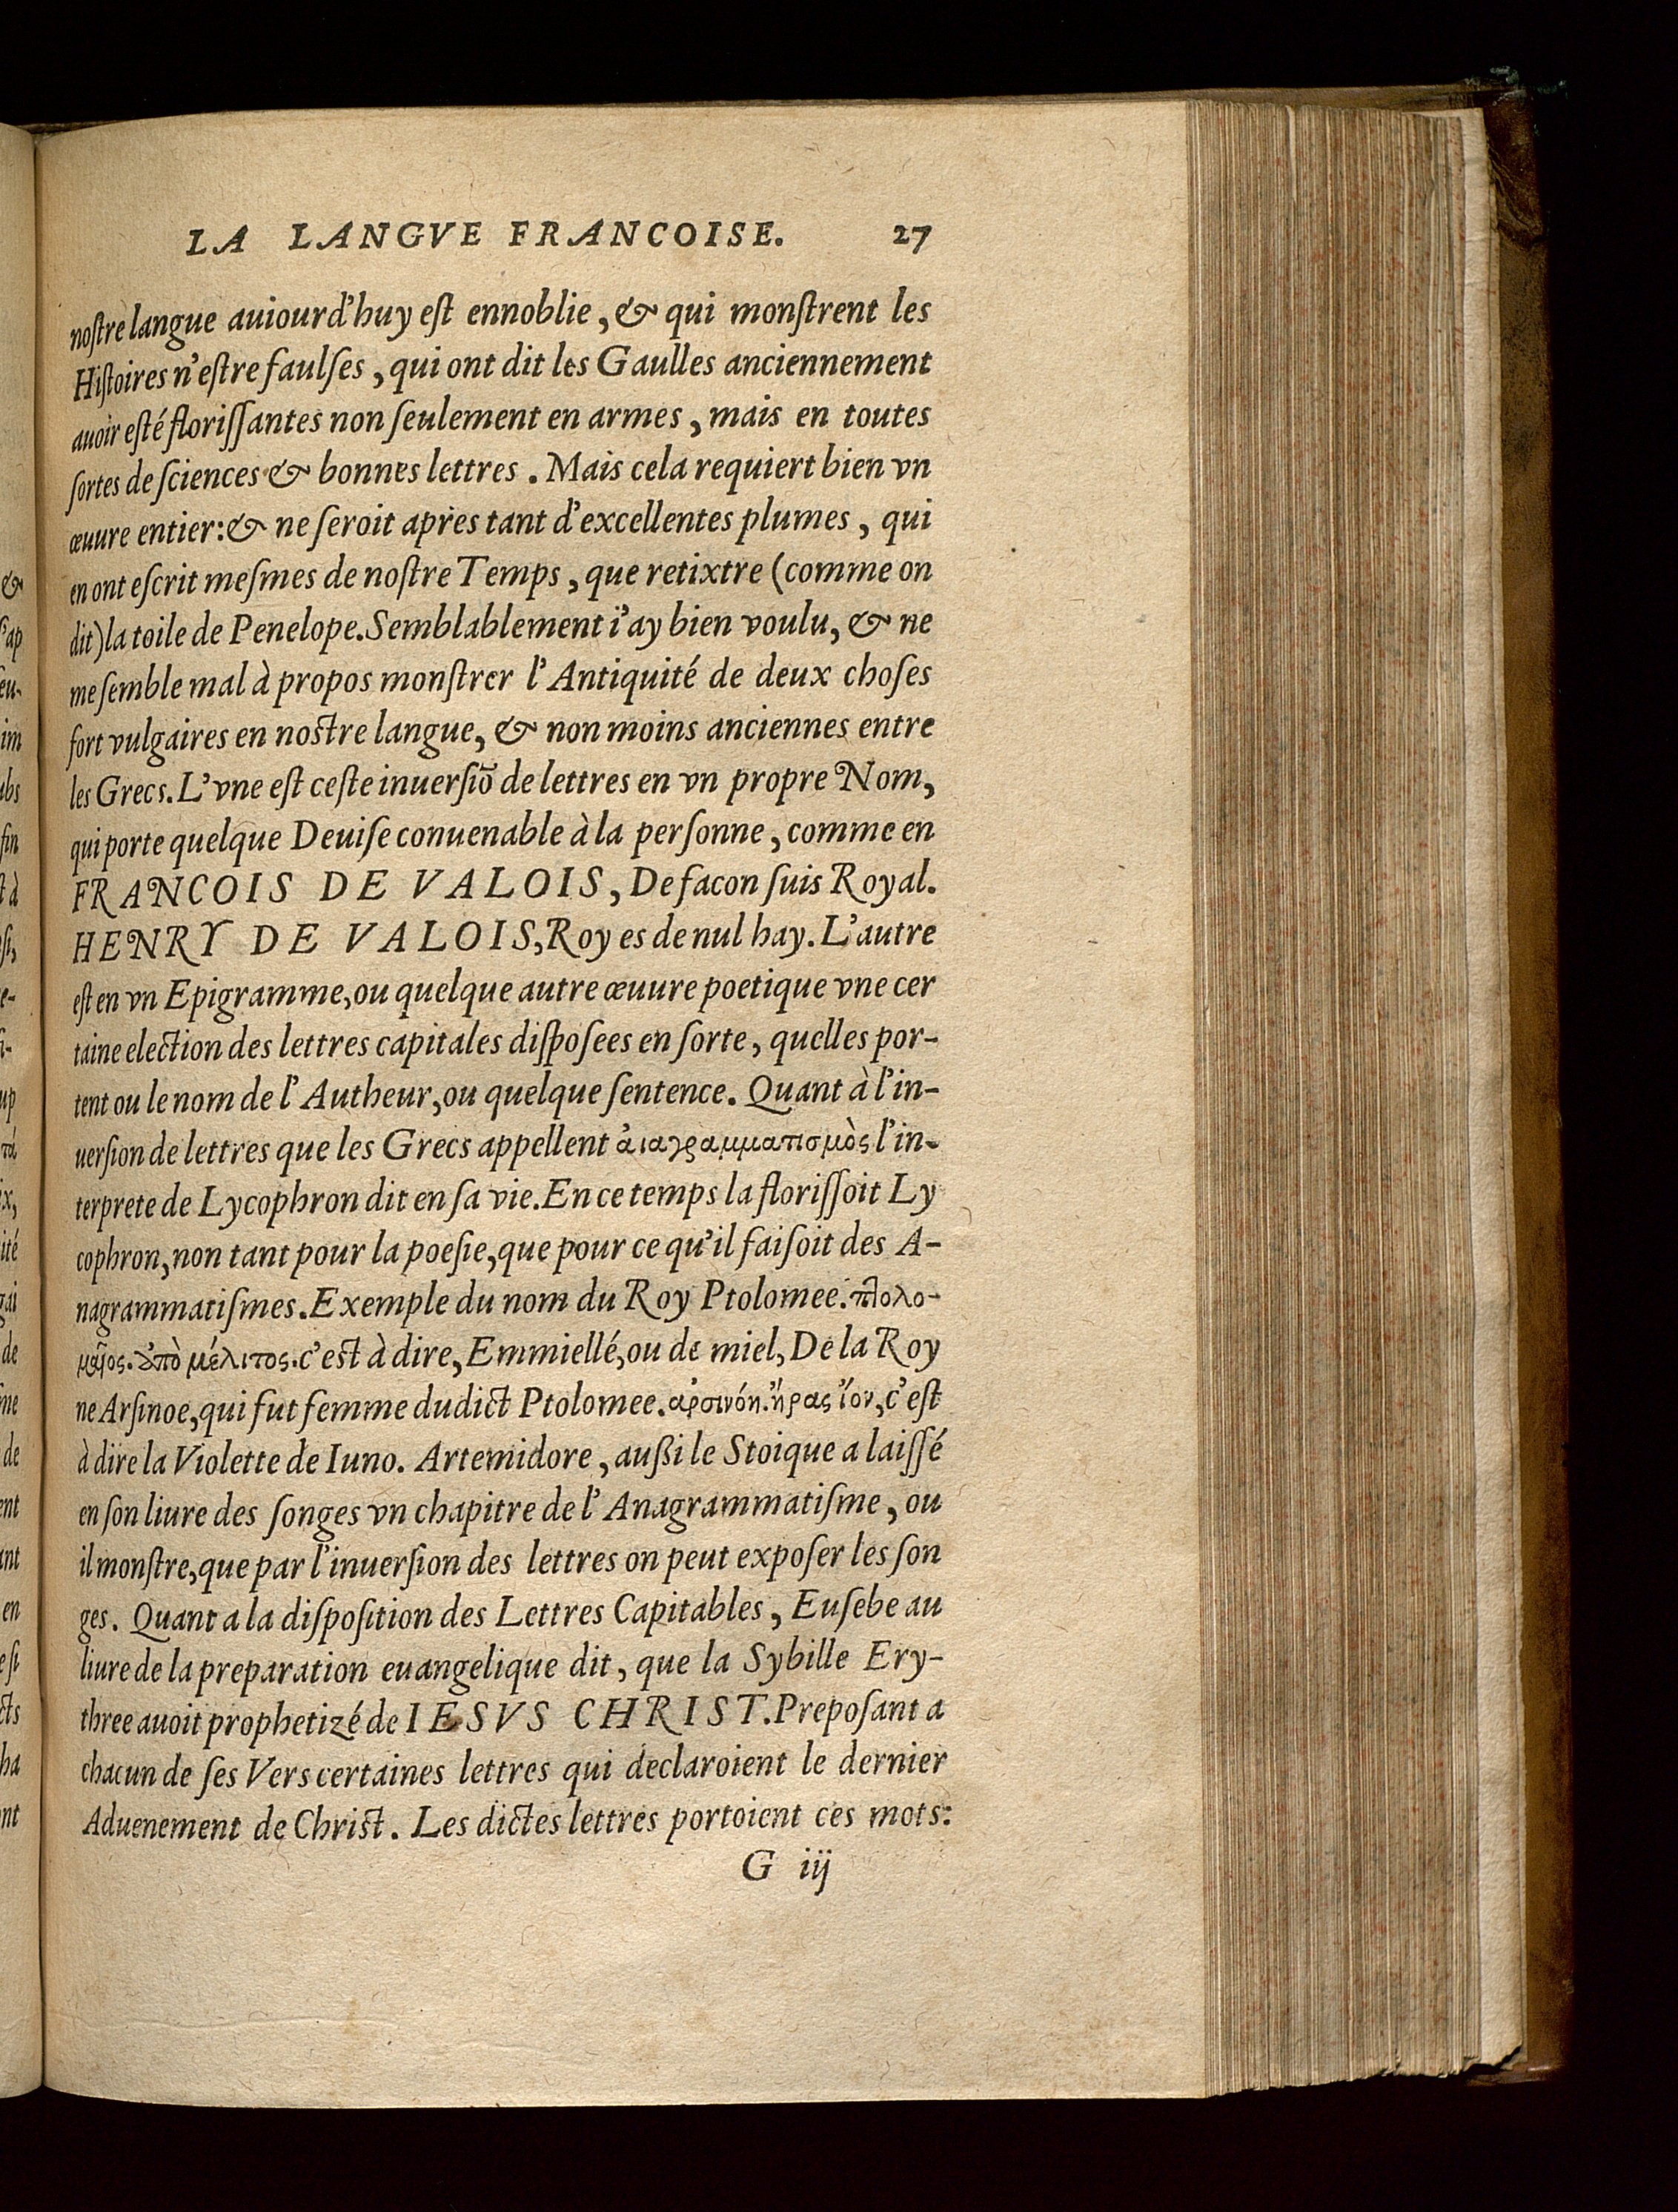 LA LANGVE FRANCOISE. 27
noſtre langue auiourd'huy eſt ennoblie, & qui monſtrent les
Hiſtoires n'eſtre faulſes, qui ont dit les Gaulles anciennement
auoir eſté floriſſantes non ſeulement en armes, mais en toutes
ſortes de ſciences & bonnes lettres. Mais cela requiert bien vn
œuure entier: & ne ſeroit apres tant d'excellentes plumes, qui
en ont eſcrit meſmes de noſtre Temps, que retixtre (comme on
dit) la toile de Penelope. Semblablement i'ay bien voulu, & ne
me ſemble mal à propos monſtrer l'Antiquité de deux choſes
fort vulgaires en noſtre langue, & non moins anciennes entre
les Grecs. L'vne eſt ceſte inuerſiō de lettres en vn propre Nom,
qui porte quelque Deuiſe conuenable à la perſonne, comme en
FRANCOIS DE VALOIS, De facon ſuis Royal.
HENRY DE VALOIS, Roy es de nul hay. L'autre
eſt en vn Epigramme, ou quelque autre œuure poetique vne cer
taine election des lettres capitales diſpoſees en ſorte, quelles por-
tent ou le nom de l'Autheur, ou quelque ſentence. Quant à l'in-
uerſion de lettres que les Grecs appellent ἀιαγραμματισμὸς l'in-
terprete de Lycophron dit en ſa vie. En ce temps la floriſſoit Ly
cophron, non tant pour la poeſie, que pour ce qu'il faiſoit des A-
nagrammatiſmes. Exemple du nom du Roy Ptolomee. πτολο-
μαῖος. ἀπὸ μέλιτος. c'eſt à dire, Emmiellé, ou de miel, De la Roy
ne Arſinoe, qui fut femme dudict Ptolomee. αρσινόη. ἥρας ἴον, c'eſt
à dire la Violette de Iuno. Artemidore, außi le Stoique a laiſſé
en ſon liure des ſonges vn chapitre de l'Anagrammatiſme, ou
il monſtre, que par l'inuerſion des lettres on peut expoſer les ſon
ges. Quant a la diſpoſition des Lettres Capitables, Euſebe au
liure de la preparation euangelique dit, que la Sybille Ery-
three auoit prophetizé de IESVS CHRIST. Prepoſant a
chacun de ſes Vers certaines lettres qui declaroient le dernier
Aduenement de Chriſt. Les dictes lettres portoient ces mots:
G iij